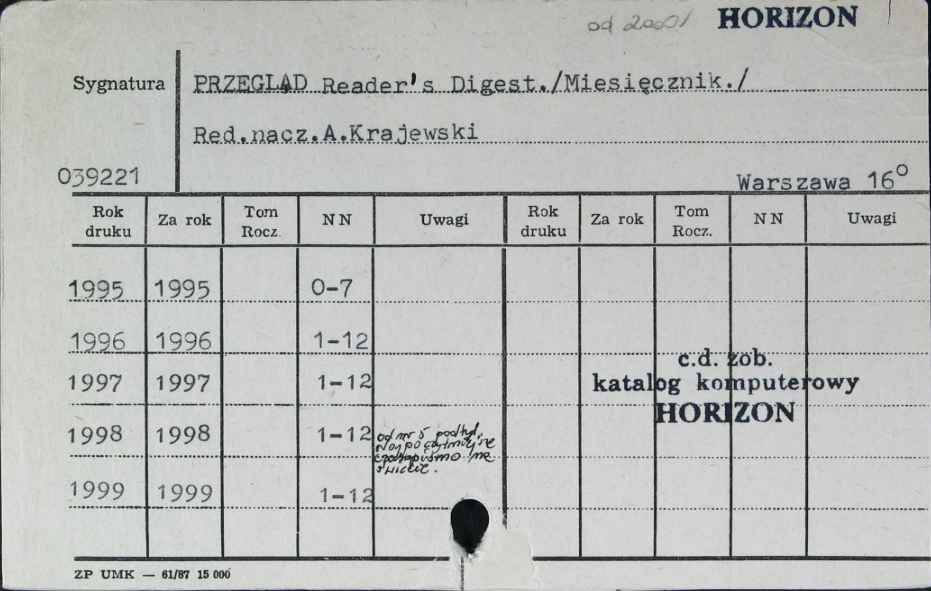 od 2000/ HORIZON
Sygnatura PRZEGLĄD Reader's Digest./Miesięcznik./
Red.nacz.A.Krajewski
039221 Warszawa 16°
Rok druku Za rok Tom Rocz. NN Uwagi Rok druku Za rok Tom Rocz. NN Uwagi
1995 1995 0-7
1996 1996 1-12
c.d. zob.
1997 1997 1-12 katalog komputerowy
HORIZON
1998 1998 1-12 od nr 5 podtyt.
Najpoczytniejsze
czasopismo na
świecie.
1999 1999 1-12
ZP UMK — 61/87 15 000